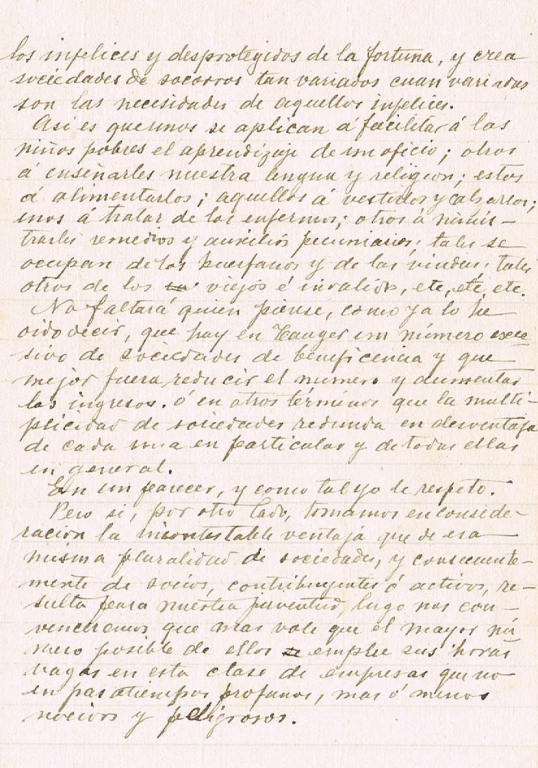 los infelices y desprotegidos de la fortuna, y crea
sociedades de socorros tan variados cuan variadas
son las necesidades de aquellos infelices.
Asi es que unos se aplican á facilitar á los
niños pobres el aprendizaje de un oficio; otros
á enseñarles nuestra lengua y religion; estos
á alimentarlos; aquellos á vestirlos y calzarlos;
unos á tratar de los enfermos; otros á minis-
trarles remedios y auxilios pecuniarios; tales se
ocupan de los huerfanos y de las viudas; tales
otros de los viejos é invalidos, etc, etc, etc.
No faltará quien piense, como ya lo he
oido decir, que hay en Tanger un número exce-
sivo de sociedades de beneficencia y que
mejor fuera reducir el numero y aumentar
los ingresos. ó en otros términos que la multi-
plicidad de sociedades redunda en desventaja
de cada una en particular y de todas ellas
en general.
Es un parecer, y como tal yo le respeto.
Pero si, por otro lado, tomamos en conside-
ración la incontestable ventaja que de esa
misma pluralidad de sociedades, y consecuente-
mente de socios, contribuyentes ó activos, re-
sulta para nuestra juventud, luego nos con-
venceremos que mas vale que el mayor nú
mero posible de ellos emplee sus horas
vagas en esta clase de empresas que no
en pasatiempos profanos, mas ó menos
nocivos y peligrosos.